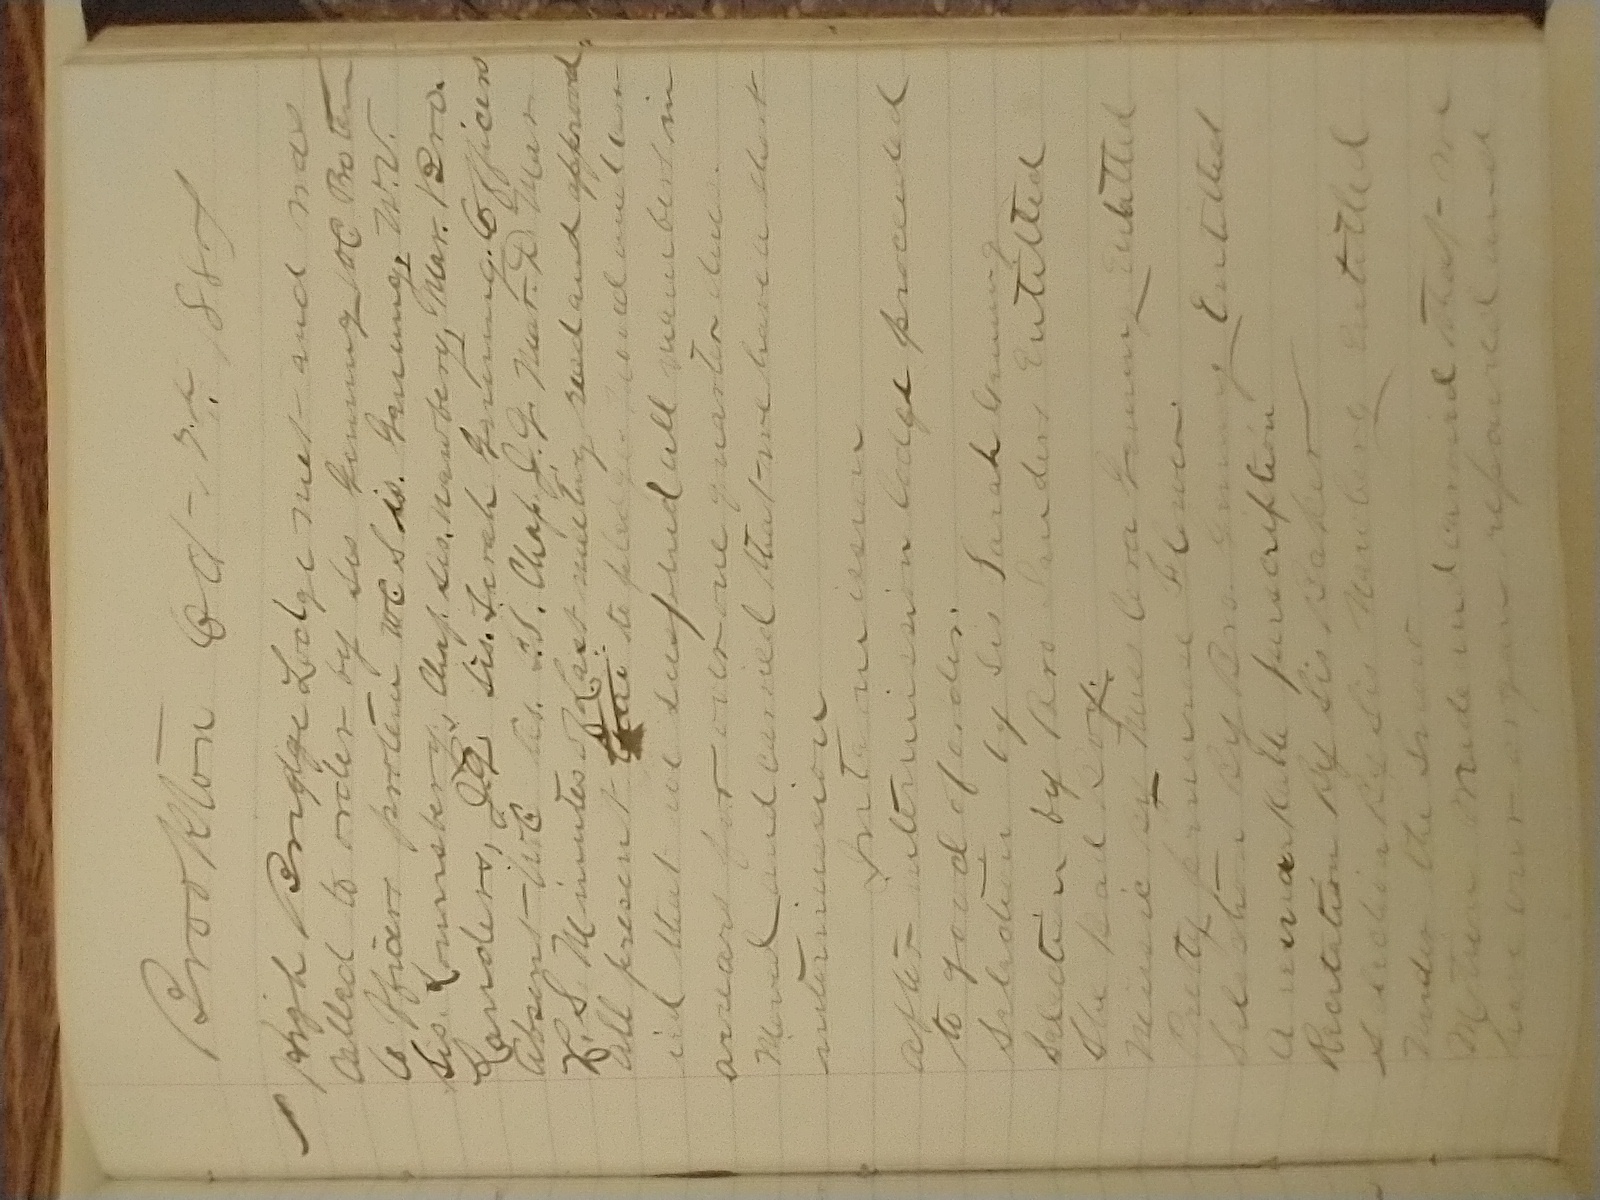 Brookton Oct. 7th. 1887
High Bridge Lodge met and was
called to order by Sis Genung WC Protem
Officers protem WC Sis. Genung, W.V.
Sis. Lounsbery, Chap. Sis. Newbery, Mar. Bro.
Sanders, J.G. Sis. Sarah Genung. Officers
absent WC As. F.S. Chap. J.G. Mar. D. Mar
R.S. Minutes of Last meeting read and approved.
all present to pledge. Moved and carr
ied that we suspend all members in
arrears for over one quarter dues.
Moved and carried that we have a short
intermission
Intermission
After intermission lodge proceeded
to good of order.
Selection by Sis Sarah Genung
Selection by Bro Sanders Entitled
The Bad Boy.
Music by Miss Cora Genung Entitled
Pretty primrose Flower.
Selection By Bro. Genung Entitled
A remarkable perscription
Recitation By Sis Baker
Selection By Sis Newbery Entitled
Under the Snow
Motion made and carried that we
have our organ repaired and